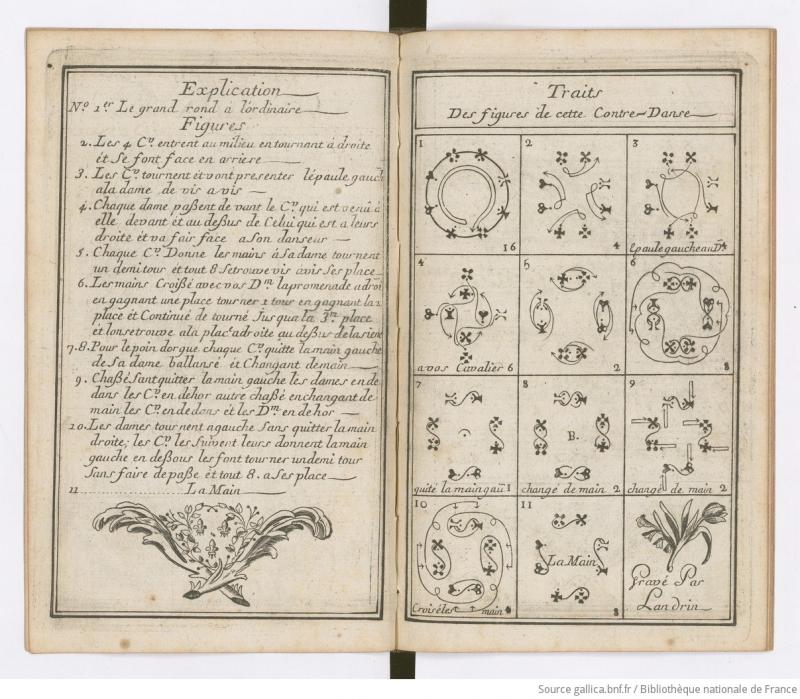 Explication
No. 1er Le grand rond à l'ordinaire
Figures
2. Les 4 Crs. entrent au milieu en tournant à droite
ét Se font face en arriere
3. Les Crs. tournent ét vont presenter lépaule gauch
a la dame de vis a vis
4. Chaque dame paßent de vant le Cr. qui est venû à
elle devant ét au deßus de Celui qui est a leurs
droite ét va fair face a Son danseur
5. Chaque Cr. Donne les mains à Sa dame tournent
un demi tour et tout 8 Se trouve vis àvis Ses place
6. Les mains Croißé avec vos Dm. la promenade a droi
en gagnant une place tourner 1 tour en gagnant la 2
place ét Continué de tourné Jusqua la 3me. place
ét lon se trouve a la place adroite au deßus de la siene
7.8. Pour le poin dorgue chaque Cr. quitte la main gauche
de Sa dame ballansé ét Changant de main
9. Chaßé Sant quitter la main gauche les dames en de
dans les Crs. en dehor autre chaßé en changant de
main les Crs. en dedans ét les Dm. en dehor
10. Les dames tournent agauche Sans quitter la main
droite, les Crs. les Suivent leurs donnent la main
gauche en deßous les font tourner un demi tour
Sans faire de paße ét tout 8. a Ses place
11 La Main
Traits
Des figures de cette Contre-Danse
1
16
2
4
3
lépaule gauche au Ds. 4
4
a vos Cavalier 6
5
2
6
8
7
quité la main gau 1
8
B.
changé de main 2
9
changé de main 2
10
Croisé les main
11
La Main
8
Gravé Par
Landrin
Source gallica.bnf.fr / Bibliothèque nationale de France